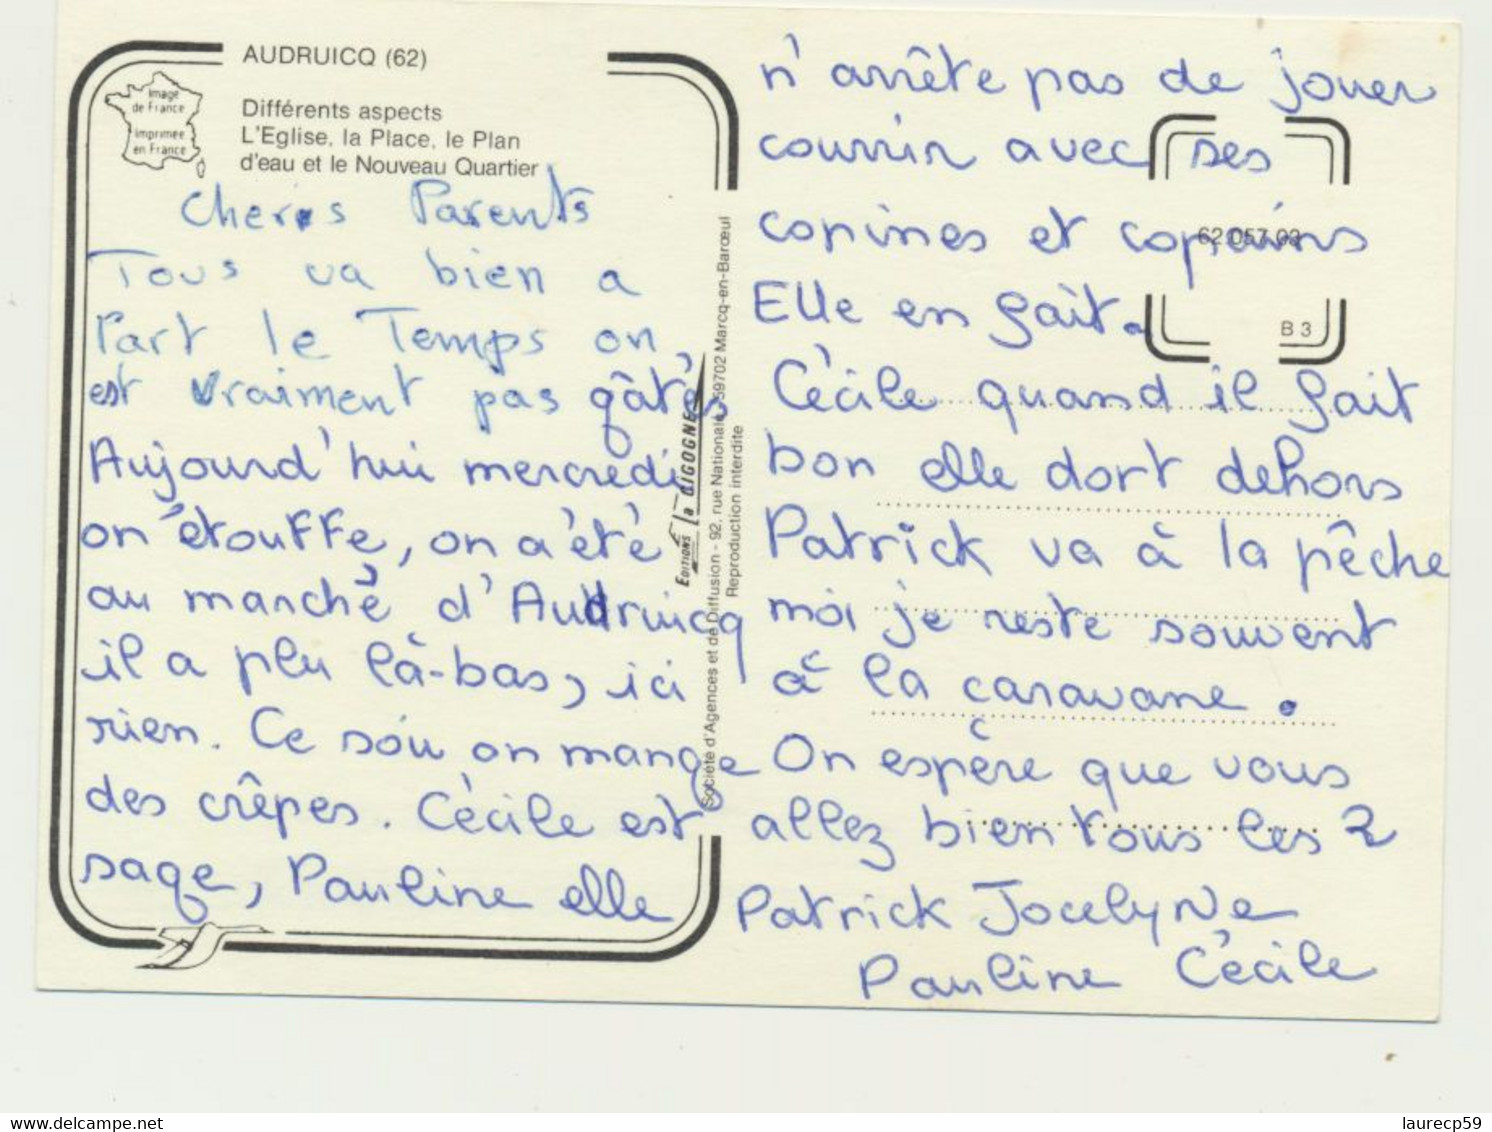 AUDRUICQ (62)
Image
de France
imprimée
en France
Différents aspects
L'Eglise, la Place, le Plan
d'eau et le Nouveau Quartier
Chers Parents
Tous va bien a
Part le Temps on
est vraiment pas gâtés
Aujourd'hui mercredi
on étouffe, on a été
au marché d'Audruicq
il a plu là-bas, ici
rien. Ce soir on mange
des crêpes. Cécile est
sage, Pauline elle
EDITIONS la CIGOGNE
Société d'Agences et de Diffusion - 92, rue Nationale 59702 Marcq-en-Barœul
Reproduction interdite
n'arrête pas de jouer
courrir avec ses
copines et copains
62.057.03
Elle en fait.
B 3
Cécile quand il fait
bon elle dort dehors
Patrick va à la pêche
moi je reste souvent
à la caravane.
On espère que vous
allez bien tous les 2
Patrick Jocelyne
Pauline Cécile
delcampe.net
laurecp59